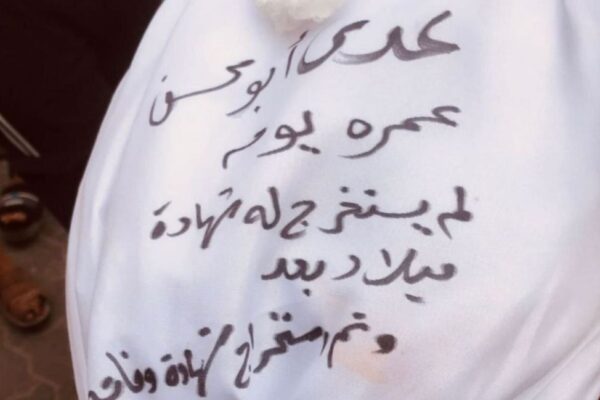 عدي أبو محسن
عمره يوم
لم يستخرج له شهادة
ميلاد بعد
وتم استخراج شهادة وفاة